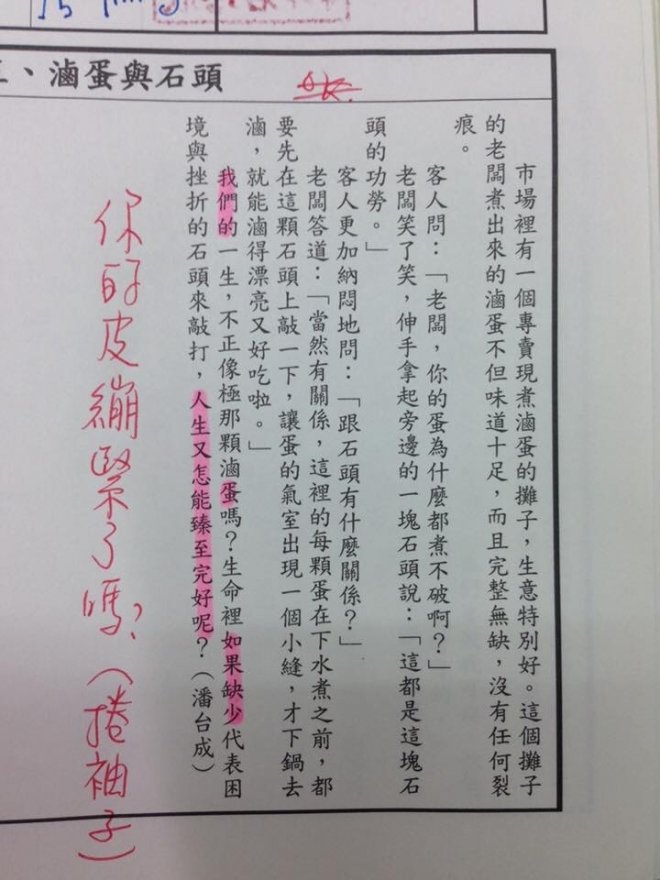 、滷蛋與石頭
市場裡有一個專賣現煮滷蛋的攤子，生意特別好。這個攤子
的老闆煮出來的滷蛋不但味道十足，而且完整無缺，沒有任何裂
痕。
客人問：「老闆，你的蛋為什麼都煮不破啊？」
老闆笑了笑，伸手拿起旁邊的一塊石頭說：「這都是這塊石
頭的功勞。」
客人更加納悶地問：「跟石頭有什麼關係？」
老闆答道：「當然有關係，這裡的每顆蛋在下水煮之前，都
要先在這顆石頭上敲一下，讓蛋的氣室出現一個小縫，才下鍋去
滷，就能滷得漂亮又好吃啦。」
我們的一生，不正像極那顆滷蛋嗎？生命裡如果缺少代表困
境與挫折的石頭來敲打，人生又怎能臻至完好呢？（潘台成）
你的皮繃緊了嗎？（捲袖子）